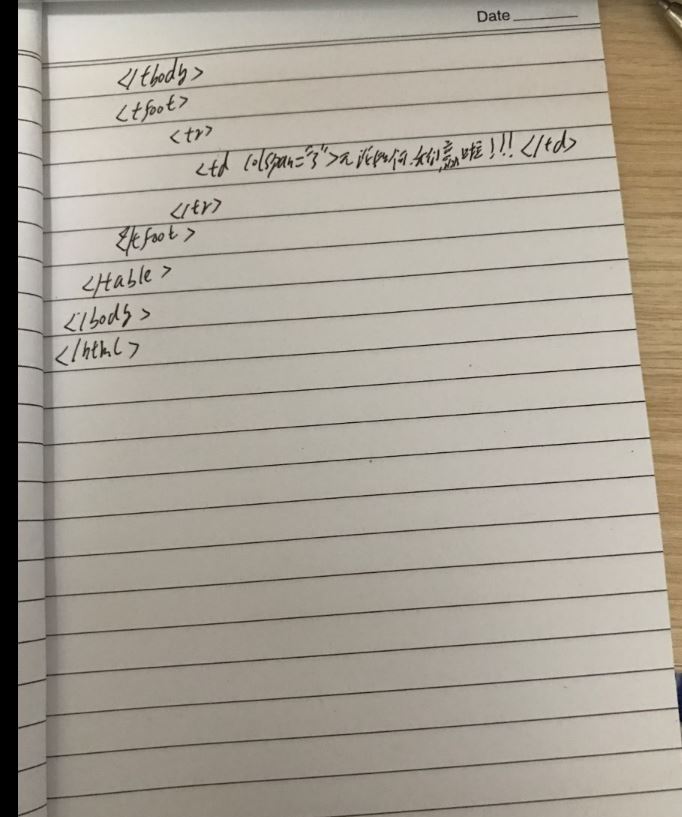 Date
</tbody>
<tfoot>
<tr>
<td colspan="3">无 !!! </td>
</tr>
</tfoot>
</table>
</body>
</html>